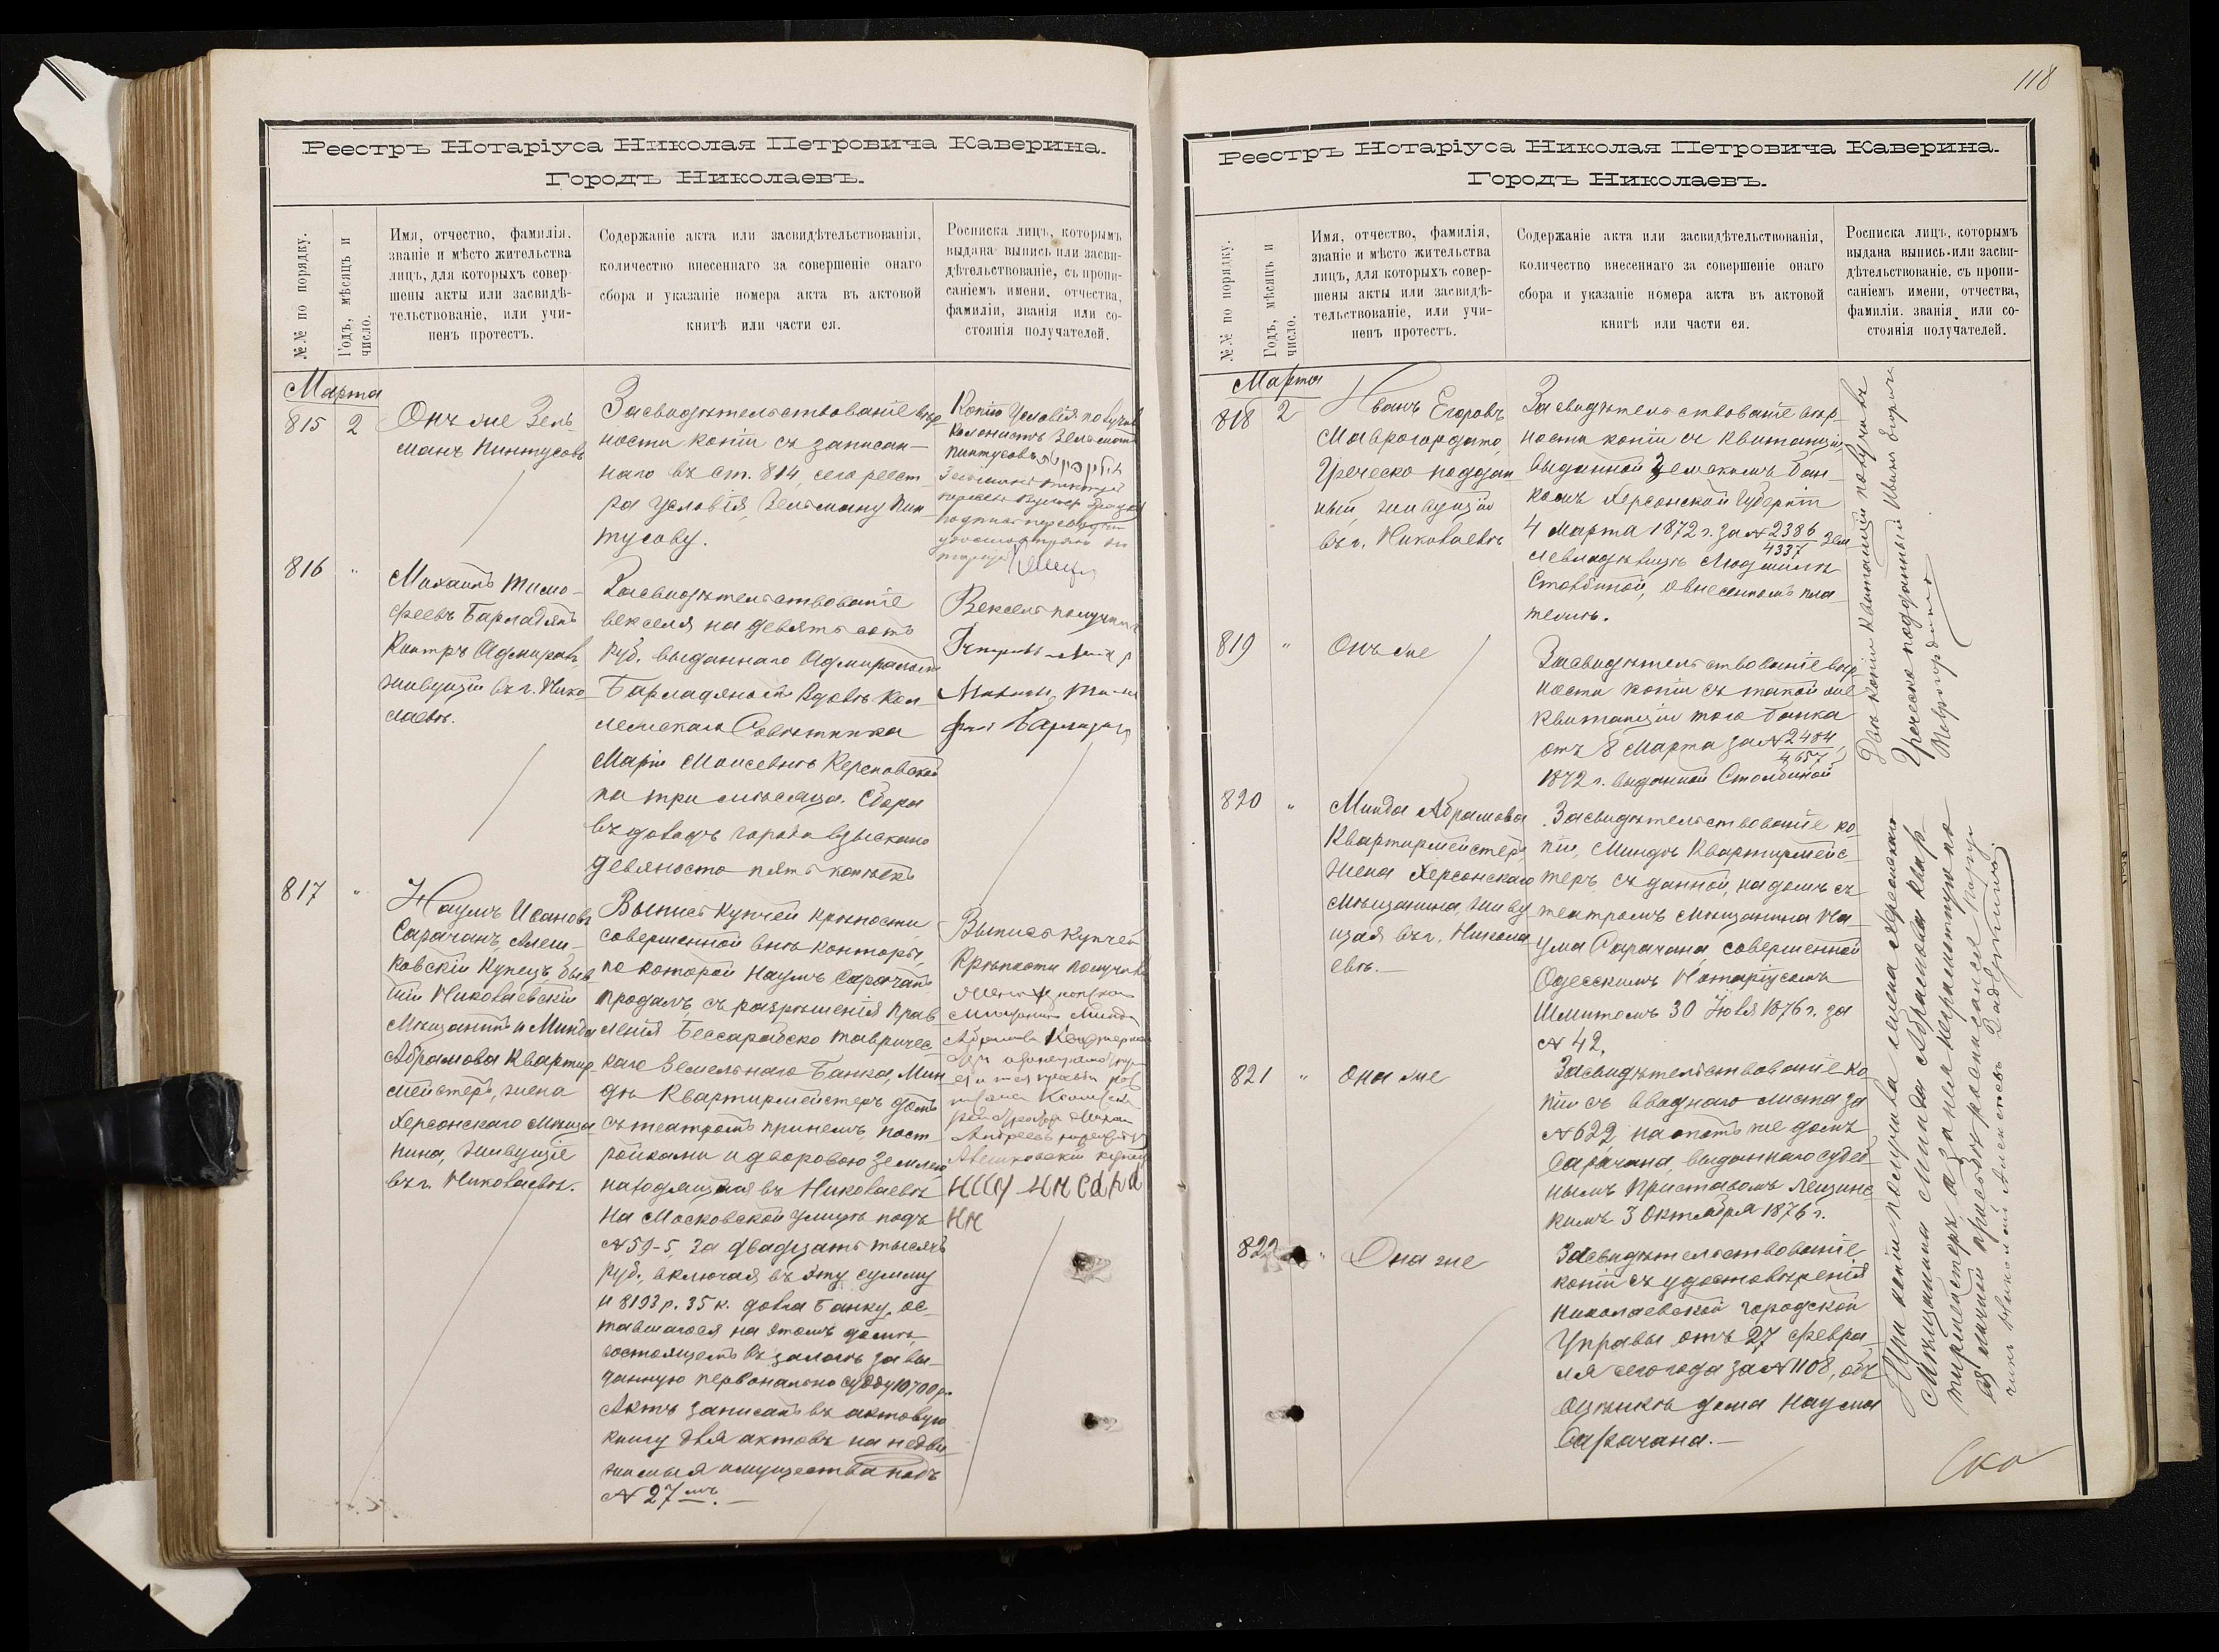 118
Реестръ Нотаріуса Николая Петровича Каверина.
Городъ Николаевъ.
№№ по порядку.
Годъ, мѣсяцъ и
число.
Имя, отчество, фамилія.
званіе и мѣсто жительства
лицъ, для которыхъ совер-
шены акты или засвидѣ-
тельствованіе, или учи-
ненъ протестъ.
Содержаніе акта или засвидѣтельствованія,
количество внесеннаго за совершеніе онаго
сбора и указаніе номера акта въ актовой
книгѣ или части ея.
Росписка лицъ, которымъ
выдана выпись или засви-
дѣтельствованіе, съ пропи-
саніемъ имени, отчества,
фамиліи, званія или со-
стоянія получателей.
Марта
815 2
Онъ же Зель
манъ Пинтусовъ
Засвидѣтельствованіе вѣр
ности копіи съ записан-
наго въ ст. 814, сего реест
ра условія, Зельману Пин
тусову.
Копію Условія получилъ
Колонистъ Зельманъ
Пинтусовъ
816 "
Михаилъ Тимо-
феевъ Барладянъ
Контръ Адмиралъ,
живущій въ г. Нико
лаевѣ.
Засвидѣтельствованіе
векселя на девятьсотъ
руб. выданнаго Адмираломъ
Барладяномъ Вдовѣ Кол
лежскаго Совѣтника
Маріи Моисеевнѣ Керсновской
на три мѣсяца. Сбора
въ доходъ города взыскано
девяносто пять копѣекъ
Вексель получилъ
817 "
Наумъ Ивановъ
Сарачанъ, Алеш-
ковскій Купецъ быв
шій Николаевскій
Мѣщанинъ и Минда
Абрамова Квартир
мейстеръ, жена
Херсонскаго Мѣща
нина, живущіе
въ г. Николаевѣ.
Выпись Купчей крѣпости
совершенной внѣ конторы,
по которой Наумъ Сарачанъ
продалъ, съ разрѣшенія Прав
ленія Бессарабско Тавричес
каго Земельнаго Банка, Мин
дѣ Квартирмейстеръ домъ
съ театромъ при немъ, пост
ройками и дворовою землею
находящійся въ Николаевѣ
на Московской улицѣ подъ
№ 59-5, за двадцать тысячъ
руб., включая въ эту сумму
и 8193 р. 35 к. долга Банку, ос-
тавшагося на этомъ домѣ,
состоящемъ въ залогѣ за вы-
данную первоначально ссуду 10700 р.
Актъ записанъ въ актовую
книгу для актовъ на недви
жимыя имущества подъ
№ 27мъ. —
Выпись купчей
Крѣпости получила
Реестръ Нотаріуса Николая Петровича Каверина.
Городъ Николаевъ.
№№ по порядку.
Годъ, мѣсяцъ и
число.
Имя, отчество, фамилія,
званіе и мѣсто жительства
лицъ, для которыхъ совер-
шены акты или засвидѣ-
тельствованіе, или учи-
ненъ протестъ.
Содержаніе акта или засвидѣтельствованія,
количество внесеннаго за совершеніе онаго
сбора и указаніе номера акта въ актовой
книгѣ или части ея.
Росписка лицъ, которымъ
выдана выпись или засви-
дѣтельствованіе, съ пропи-
саніемъ имени, отчества,
фамиліи, званія или со-
стоянія получателей.
Марта
818 2
Иванъ Егоровъ
Маврогордато,
Греческо поддан
ный живущій
въ г. Николаевѣ
Засвидѣтельствованіе вѣр
ности копіи съ квитанціи,
выданной Земскимъ Бан
комъ Херсонской Губерніи
4 Марта 1872 г. за № 2386/4337 Зем
левладѣлицѣ Людмилѣ
Столбиной, о внесенномъ пла
тежѣ.
819 "
Онъ же
Засвидѣтельствованіе вѣр
ности копіи съ такой же
квитанціи того Банка
отъ 8 Марта за № 2484/4657,
1872 г. выданной Столбиной
Двѣ копіи квитанцій получилъ
Греческо подданный Иванъ Егоровъ
Маврогордато
820 "
Минда Абрамова
Квартирмейстеръ,
жена Херсонскаго
Мѣщанина, живу
щая въ г. Никола
евѣ. —
Засвидѣтельствованіе ко
піи, Миндѣ Квартирмейс-
теръ, съ данной, на домъ съ
театромъ Мѣщанина На
ума Сарачана, совершенной
Одесскимъ Нотаріусомъ
Шмитомъ 30 Іюля 1876 г. за
№ 42.
821 "
Она же
Засвидѣтельствованіе ко
піи съ вводнаго листа за
№ 622, на тотъ же домъ
Сарачана, выданнаго судеб
нымъ Приставомъ Лещинс
кимъ 3 Октября 1876 г.
822 "
Она же
Засвидѣтельствованіе
копіи съ удостовѣренія
Николаевской Городской
Управы отъ 27 Февра
ля сего года за № 1108, объ
оцѣнкѣ дома Наума
Сарачана. —
Три копіи получила жена Херсонскаго
Мѣщанина Минда Абрамова Квар
тирмейстеръ, а за нея неграмотную по